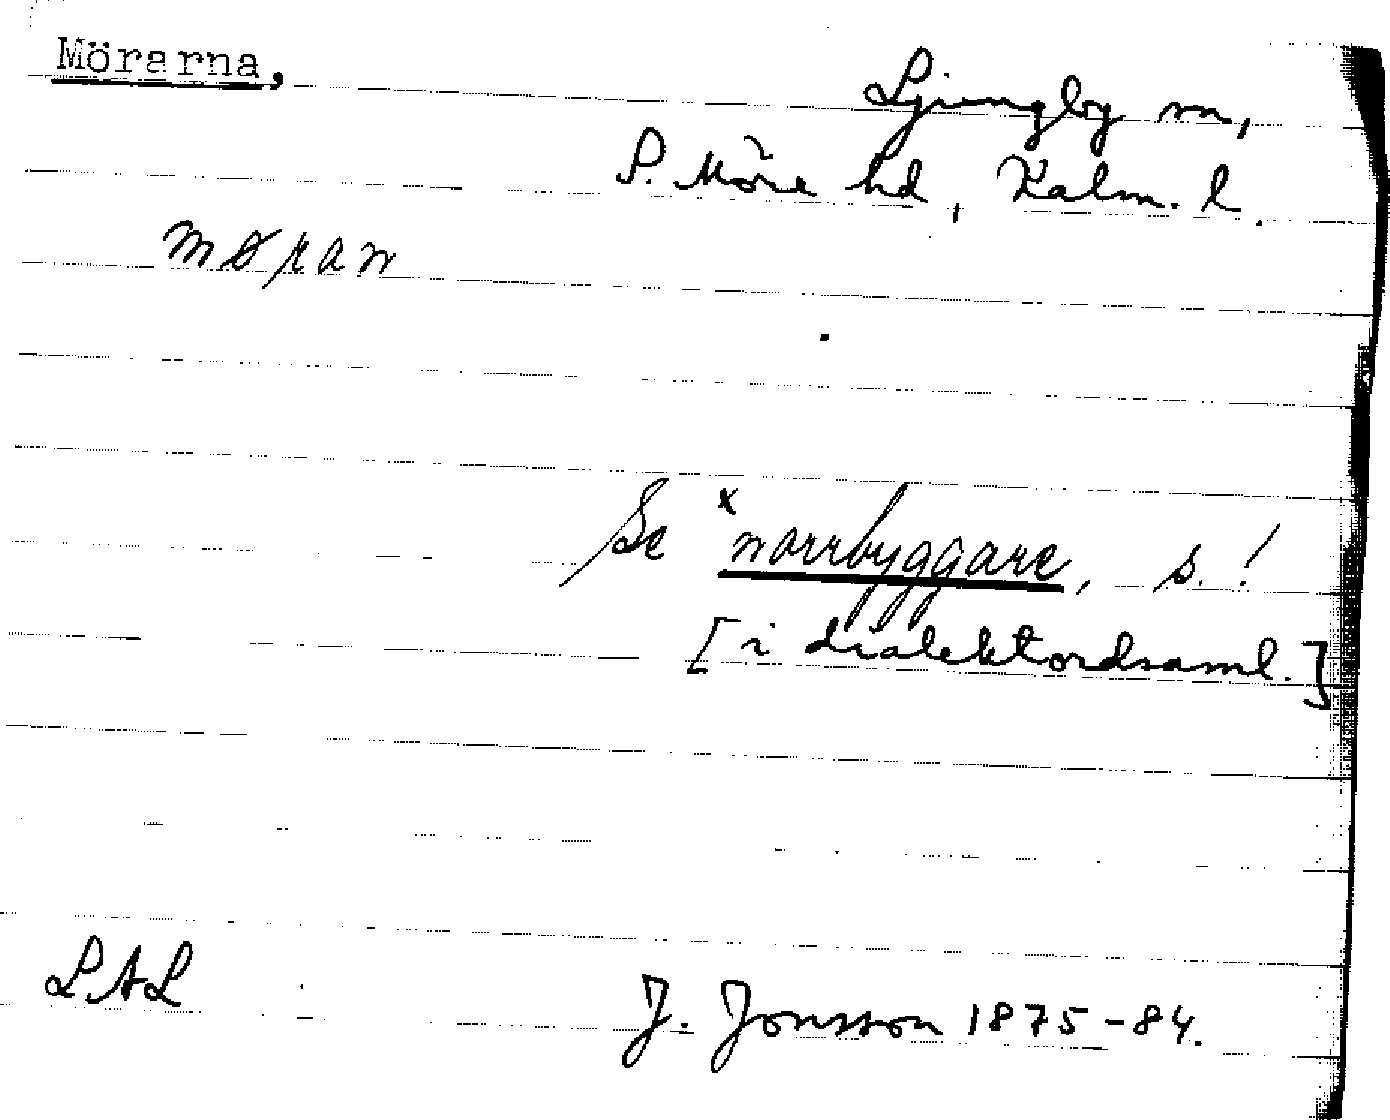 Mörarna,
Ljungby sn,
S. Möre hd, Kalm. l.
møran
Se ˣnorrbyggare, s.!
[i dialektordsaml.]
LAL
J. Jonsson 1875-84.